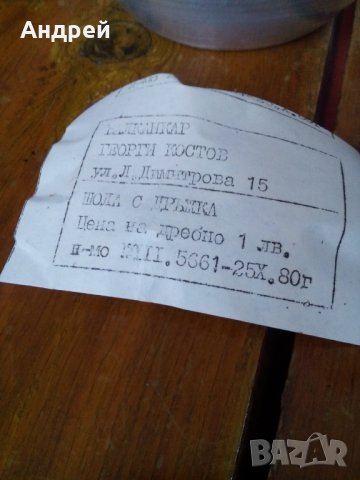 Андрей
ТЕНЕКИКАР
ГЕОРГИ КОСТОВ
ул.Л.Димитрова 15
ШОЛА С ДРЪЖКА
Цена на дребно 1 лв.
п-мо №III.5661-25X.80г
BAZAR